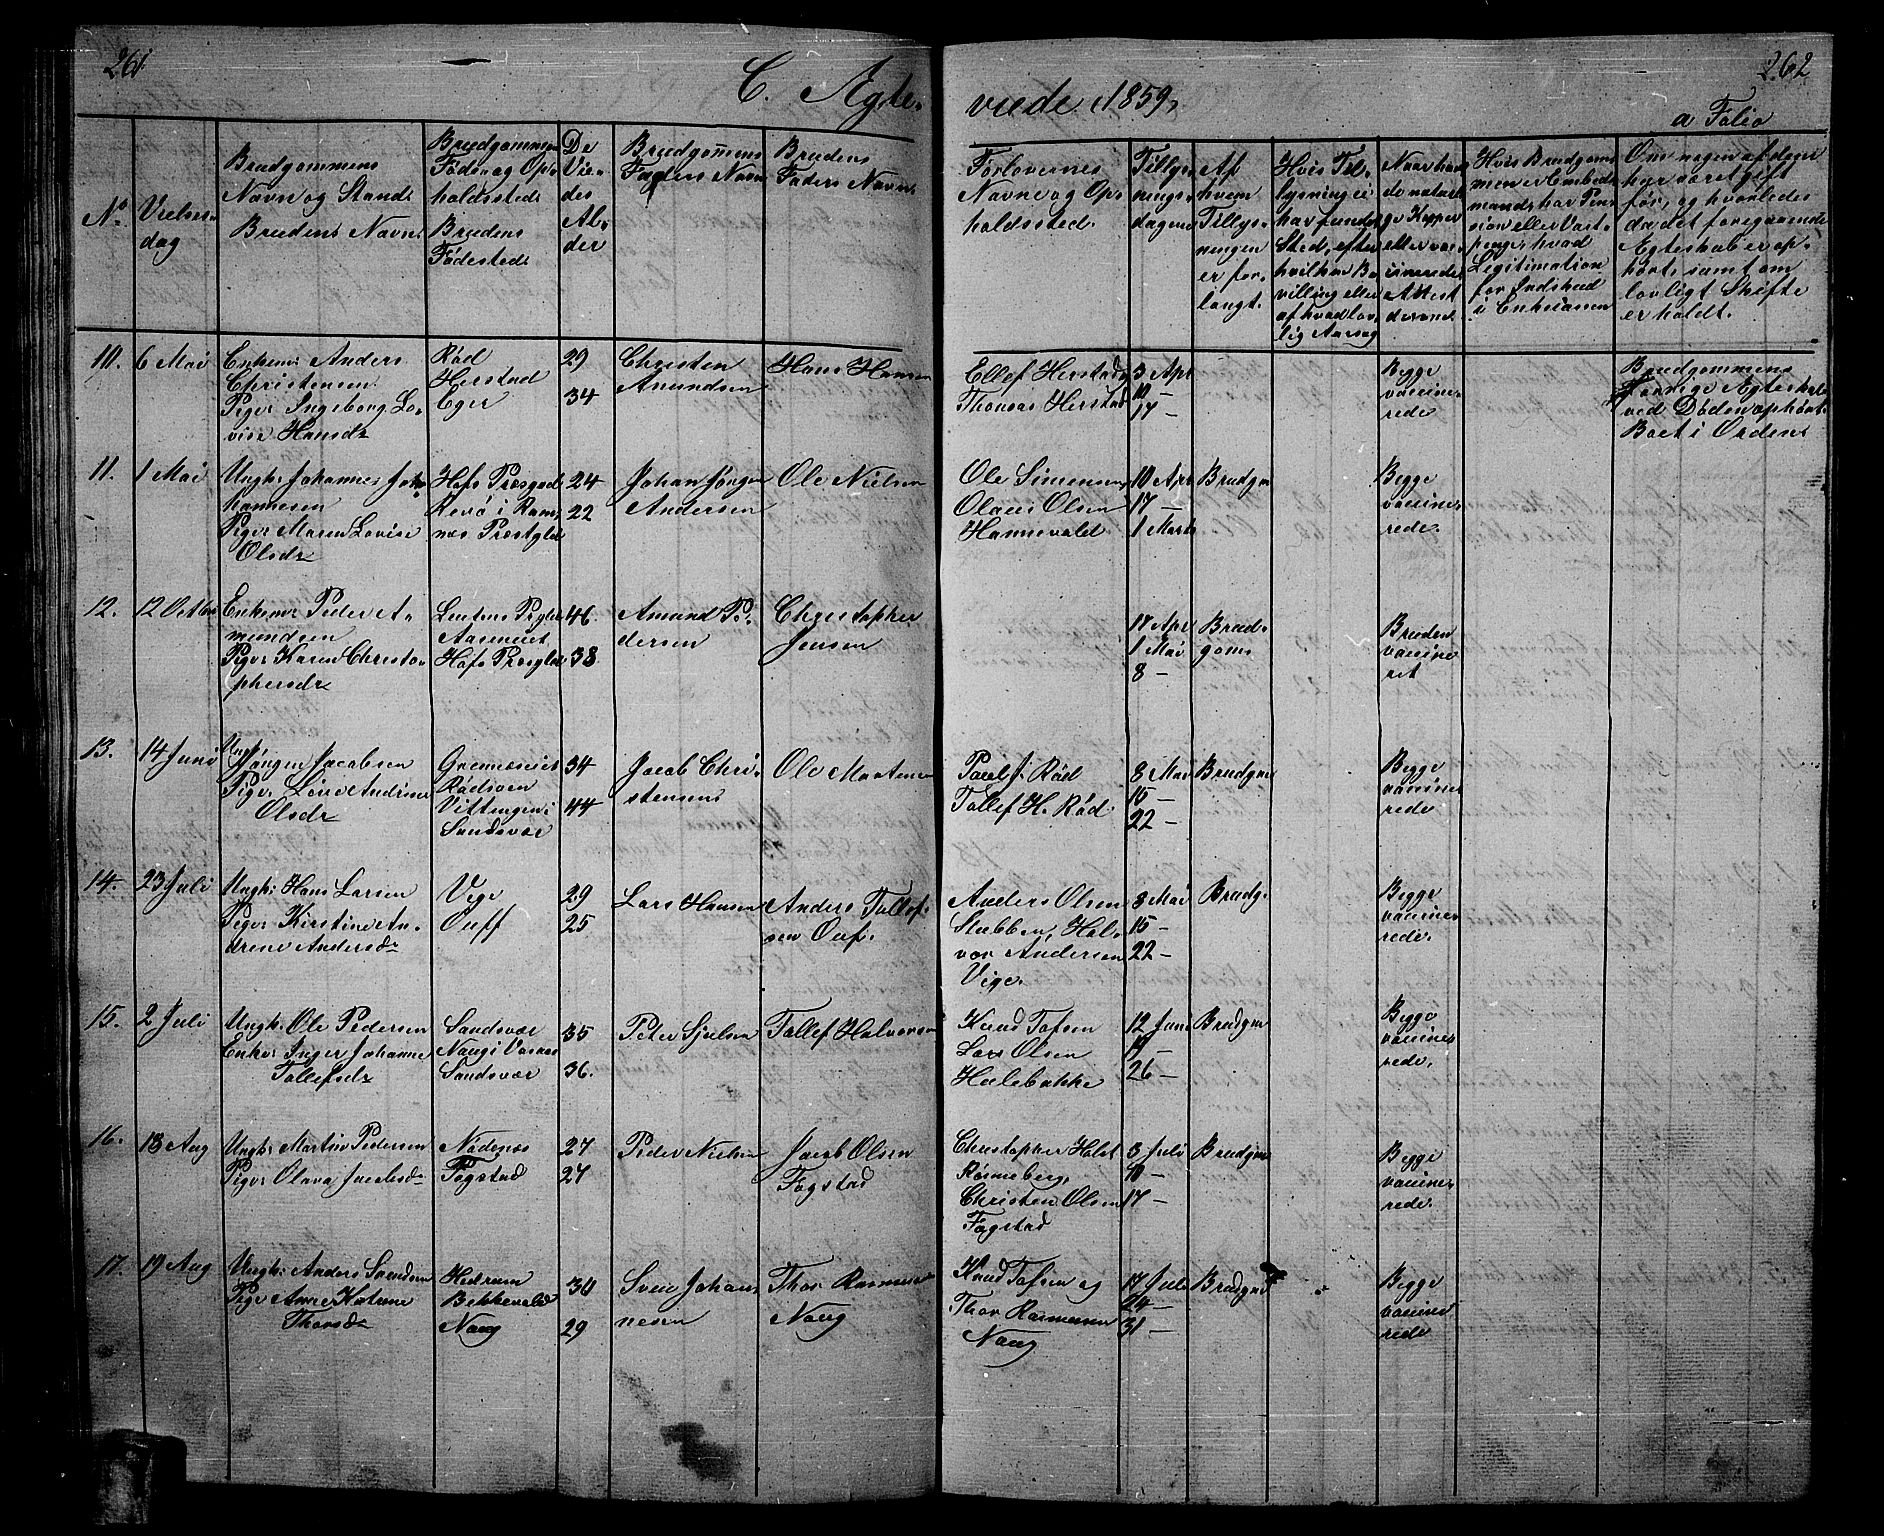 261
262
C. Ægte.
viede 1859,
a Folio
No
Vielses-
dag
Brudgommens
Navn og Stand
Brudens Navn
Brudgommens
Føde og Op-
holdssted
Brudens
Fødested
De
Vie-
des
Al-
der
Brudgom̄ens
Faders Navn
Brudens
Faders Navn
Forlovernes
Navne og Op-
holdssted.
Tillys-
nings-
dagene
Af
hvem
Tillys-
ningen
er for-
langt.
Hvis Til-
lysning ei
har fundet
Sted, efter
hvilken Be-
villing eller
af hvad lov-
lig Aarsag
Naar havde
de naturli-
ge Kopper
eller vac-
cinerede
Attest
derom
Hvis Brudgom-
men er Embeds-
mand, har Pen-
sion eller Vart-
penge, hvad
Legitimation
for Indskud
i Enkekassen
Om nogen af dem
har været gift
før, og hvorledes
da det foregaaende
Ægteskab er op-
hørt, samt om
lovligt Skifte
er holdt.
10. 6 Mai
Enkem: Anders
Christensen
Pige: Ingeborg Lo-
vise Hansdr
Rød
Herstad
Eger
29
34
Christen
Amundsen
Hans Hansen
Ellef Herstad
Thomas Herstad
3 Apr
10 —
17 —
Begge
vaccine-
rede
Brudgommens
forrige Ægteskab
ved Døden ophørt
Boet i Orden
11. 1 Mai
Ungk: Johannes Jo-
hannesen
Pige: Maren Lovise
Olsdr
Hofs Præsgjed
Revø i Ram-
næs Præstgjeld
24
22
Johan Jørgen
Andersen
Ole Nielsen
Ole Simensen
Olaus Olsen
Hannevold
10 Apr
17 —
1 Marts
Brudgm
Begge
vaccine-
rede.
12. 12 Octbr
Enkem: Peder A-
mundsen
Pige: Karen Christo-
phersdr
Aasnæset
Hofs Præsgjeld
46.
38
Amund Pe-
dersen
Christopher
Jensen
17 Apr
1 Mai
8 —
Brud-
goms
Bruden
vaccine
ret
13. 14 Juni
Ungk:
Jørgen Jacobsen
Pige: Lovise Andrine
Olsdr
Grennæsset
Rødsven
Vittingen i
Sandsvær
34
44
Jacob Chri-
stensen
Ole Mortensen
Paul J. Rød
Tollef H. Rød
8 Mai
15 —
22 —
Brudgm
Begge
vaccine-
rede
14. 23 Juli
Ungk: Hans Larsen
Pige: Kirstine An-
drine Andersdr
Vige
Ouff
29
25
Lars Hansen
Anders Tollef-
sen Ouf.
Anders Olsen
Stubben, Hal-
vor Andersen
Vige.
8 Mai
15 —
22 —
Brudg.
Begge
vaccine-
rede.
15. 2 Juli
Ungk: Ole Pedersen
Enke: Inger Johanne
Tollefsdr
Sandsvær
Naugi Vasnas
Sandsvær
35
36.
Peter Sjulsen
Tollef Halvorsen
Knud Tofsen
Lars Olsen
Hulebakke
12 Juni
19 —
26 —
Brudgm
Begge
vaccine-
rede.
16. 18 Aug
Ungk: Martin Pedersen
Pige: Olava Jacobsdr
Nødenæs
Fogstad
27
27
Peder Nielsen
Jacob Olsen
Fogstad
Christopher Holst
Rønneberg,
Christen Olsen
Fogstad
3 Juli
10 —
17 —
Brudgm
Begge
vaccine-
rede.
17. 19 Aug
Ungk: Anders Svendsen
Pige Anne Katrine
Thorsdr
Hedrum
Bekkevold
Naug
30
29
Sven Johan-
nesen
Thor Rasmussen
Naug
Knud Tofsen og
Thor Rasmussen
Naug
17 Juli
24 —
31 —
Brudgm
Begge
vaccine-
rede